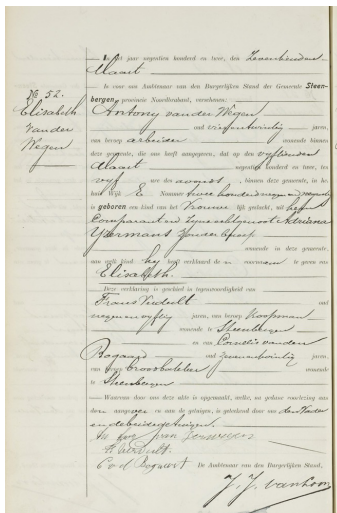 No 52.
Elisabeth
van der
Wegen
In het jaar negentien honderd en twee, den zeventienden
Maart
is voor ons Ambtenaar van den Burgerlijken Stand der Gemeente Steen-
bergen, provincie Noordbrabant, verschenen:
Antony van der Wegen
oud vijfentwintig jaren,
van beroep arbeider wonende binnen
deze gemeente, die ons heeft aangegeven, dat op den vijftienden
Maart negentien honderd en twee, ten
vijf ure des avonds, binnen deze gemeente, in het
huis Wijk E Nummer twee honderd
is geboren een kind van het Vrouwelijk geslacht, uit hem
Comparant en zijne echtgenoot Adriana
IJzermans zonder beroep
wonende in deze gemeente,
aan welk kind hij heeft verklaard de voornaam te geven van
Elisabeth.
Deze verklaring is geschied in tegenwoordigheid van
Frans Verdult oud
negenenvijftig jaren, van beroep Koopman
wonende te Steenbergen
en van Cornelis van den
Bogaard oud zevenentwintig jaren,
van beroep wonende
te Steenbergen
Waarvan door ons deze akte is opgemaakt, welke, na gedane voorlezing aan
den aangever en aan de getuigen, is geteekend door ons, den Vader
en de beide getuigen.
van der wegen
F. Verdult
C v d Bogaert De Ambtenaar van den Burgerlijken Stand,
J. J. van Loon